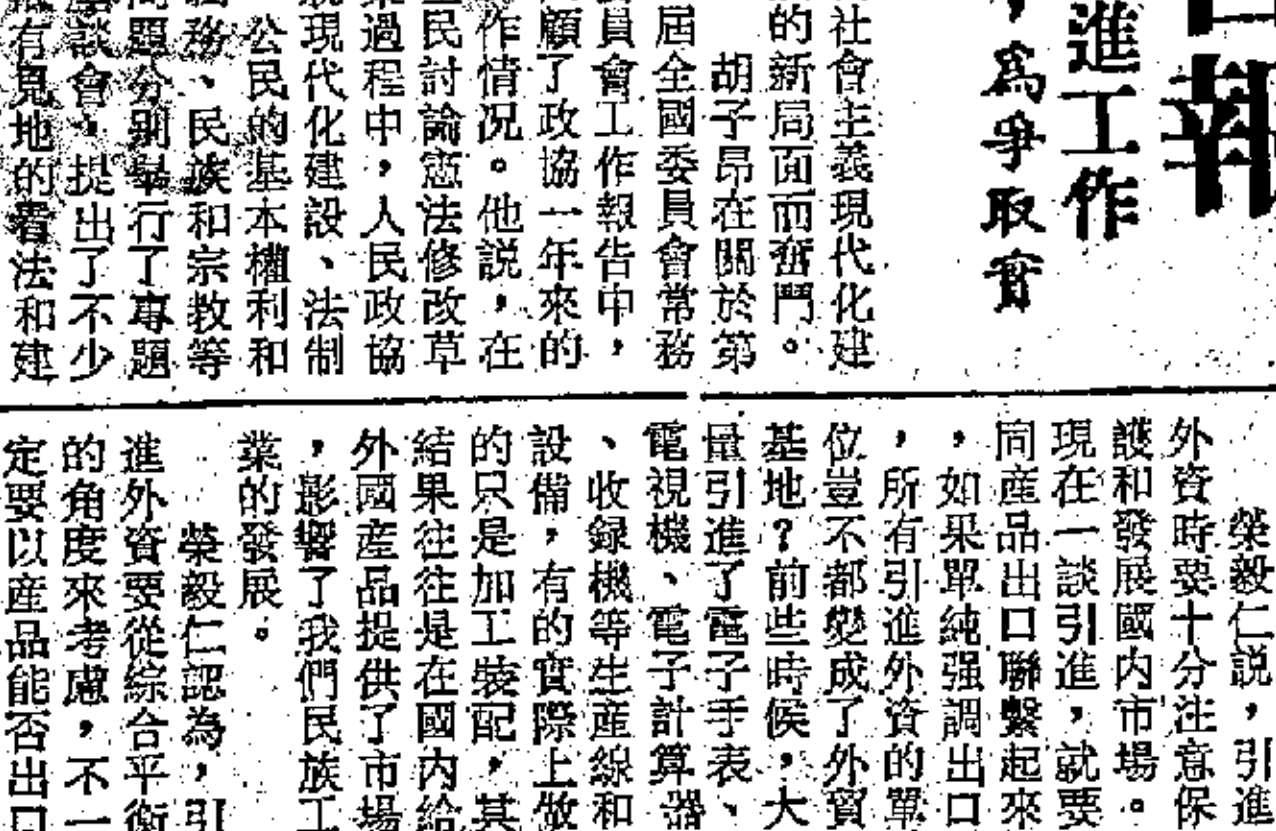 日報
進工作
，爲爭取實
社會主義現代化建
的新局面而奮鬥。
胡子昂在關於第
屆全國委員會常務
員會工作報告中，
顧了政協一年來的
作情況。他説，在
民討論憲法修改草
過程中，人民政協
現代化建設、法制
公民的基本權利和
務、民族和宗教等
問題分别舉行了專題
談會，提出了不少
有見地的看法和建
榮毅仁説，引進
外資時要十分注意保
護和發展國内市場。
現在一談引進，就要
同産品出口聯繫起來
，如果單純强調出口
，所有引進外資的單
位豈不都變成了外貿
基地？前些時候，大
量引進了電子手表、
電視機、電子計算器
、收録機等生産線和
設備，有的實際上做
的只是加工裝配，其
結果往往是在國内給
外國産品提供了市場
，影響了我們民族工
業的發展。
榮毅仁認為，引
進外資要從綜合平衡
的角度來考慮，不一
定要以産品能否出口